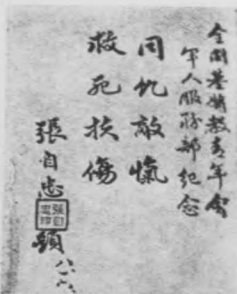 全國基督教青年會
軍人服務部紀念
同仇敵愾
救死扶傷
張自忠
題 八、六、